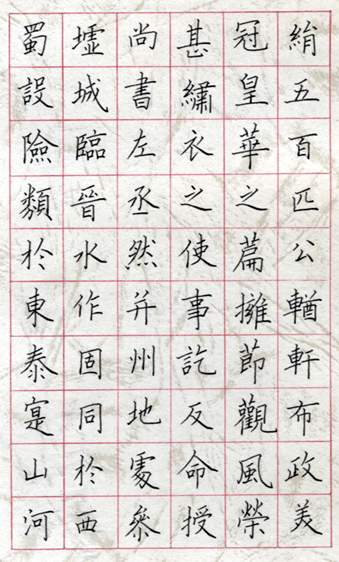 絹五百匹公輶軒布政美
冠皇華之篇擁節觀風榮
甚繡衣之使事訖反命授
尚書左丞然并州地處參
墟城臨晉水作固同於西
蜀設險類於東泰寔山河